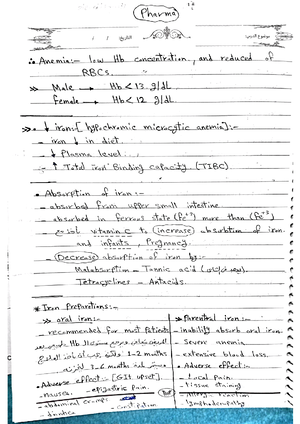 Pharma
∴ Anemia:- low Hb concentration, and reduced of
RBCs.
» Male → Hb < 13 g/dL
Female → Hb < 12 g/dL
» ↓ iron:- [hypochromic microcytic anemia]:-
- iron ↓ in diet.
- ↓ Plasma level
- ↑ Total iron Binding capacity (TIBC)
• Absorption of iron:-
- absorbed from upper small intestine
- absorbed in ferrous state (Fe+2) more than (Fe+3)
vitamin C to increase absorbtion of iron.
and infants, Pregnacy.
- Decrease absorption of iron by:-
Malabsorption - Tannic acid
Tetracyclines - Antacids.
* Iron Prepartions:-
» oral iron:-
- recommended for most Patients
1-2 months
3-6 months
• Adverse effect:- [GIT upset].
nausea - epigastric pain.
- abdominal cramps
» Parentral iron:-
- inability absorb oral iron.
- Severe anemia
- extensive blood loss.
• Adverse effect:-
- Local pain.
- tissue staining